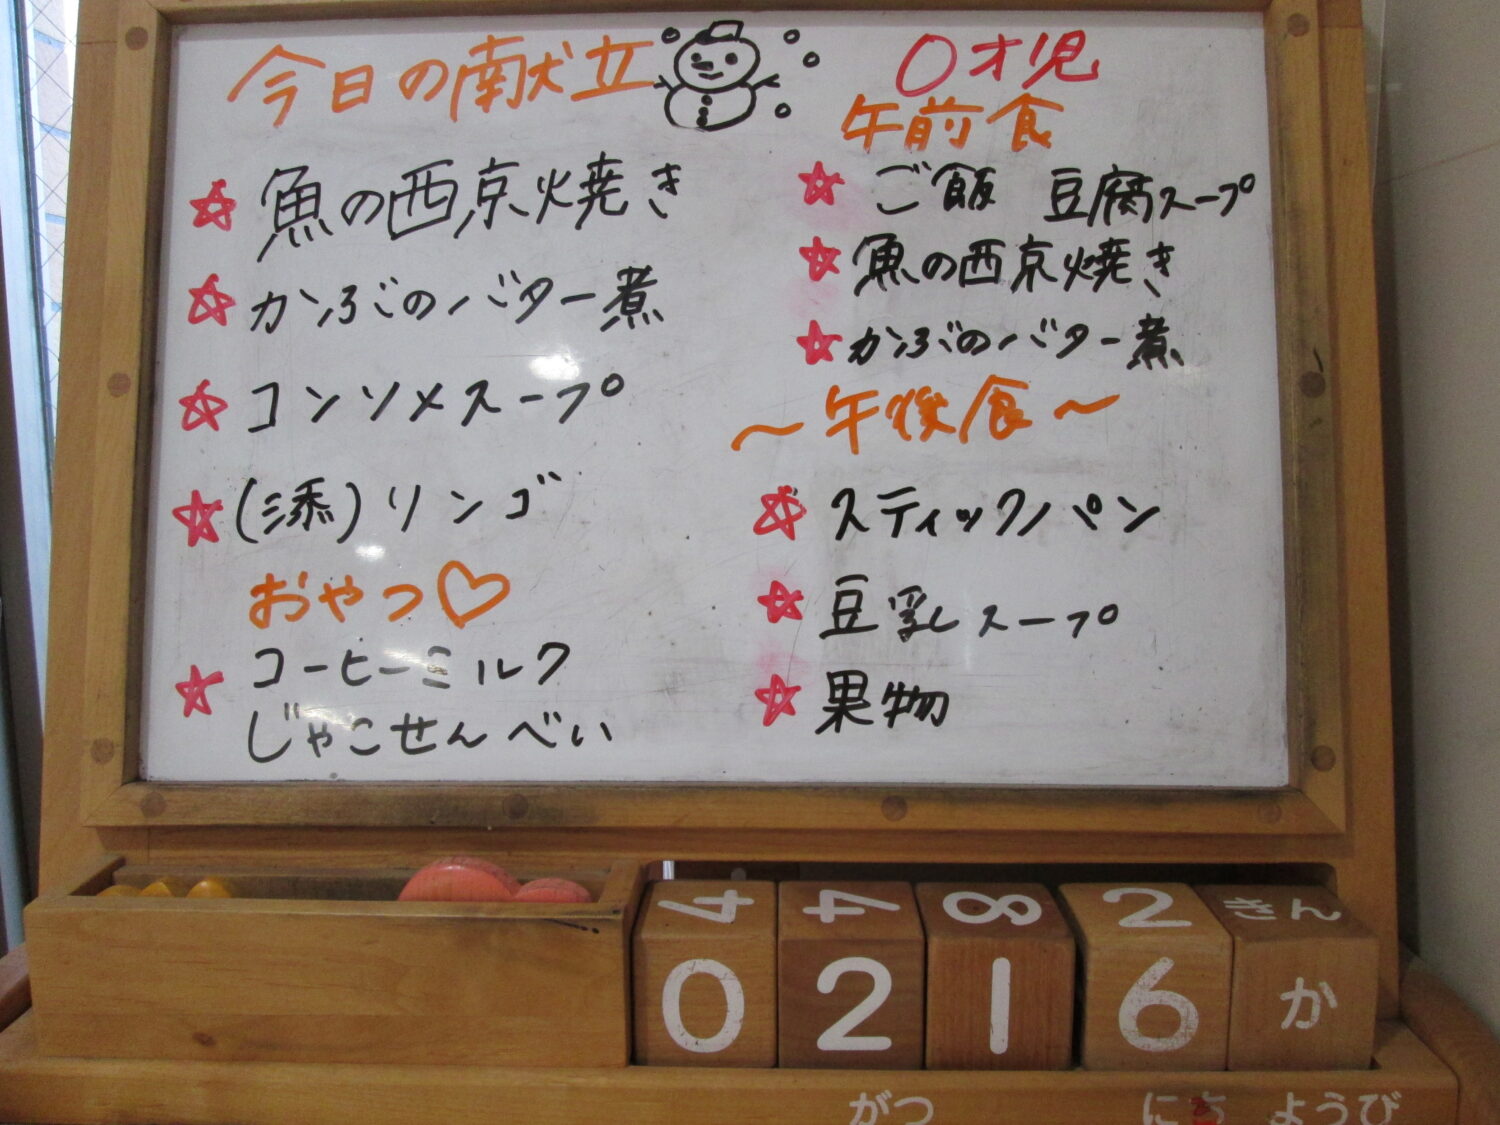 今日の献立
☆ 魚の西京焼き
☆ かぶのバター煮
☆ コンソメスープ
☆ (添)リンゴ
おやつ♡
☆ コーヒーミルク
じゃこせんべい
0才児
午前食
☆ ご飯 豆腐スープ
☆ 魚の西京焼き
☆ かぶのバター煮
～午後食～
☆ スティックパン
☆ 豆乳スープ
☆ 果物
4 4 8 2 きん
0 2 1 6 か
がつ にち ようび